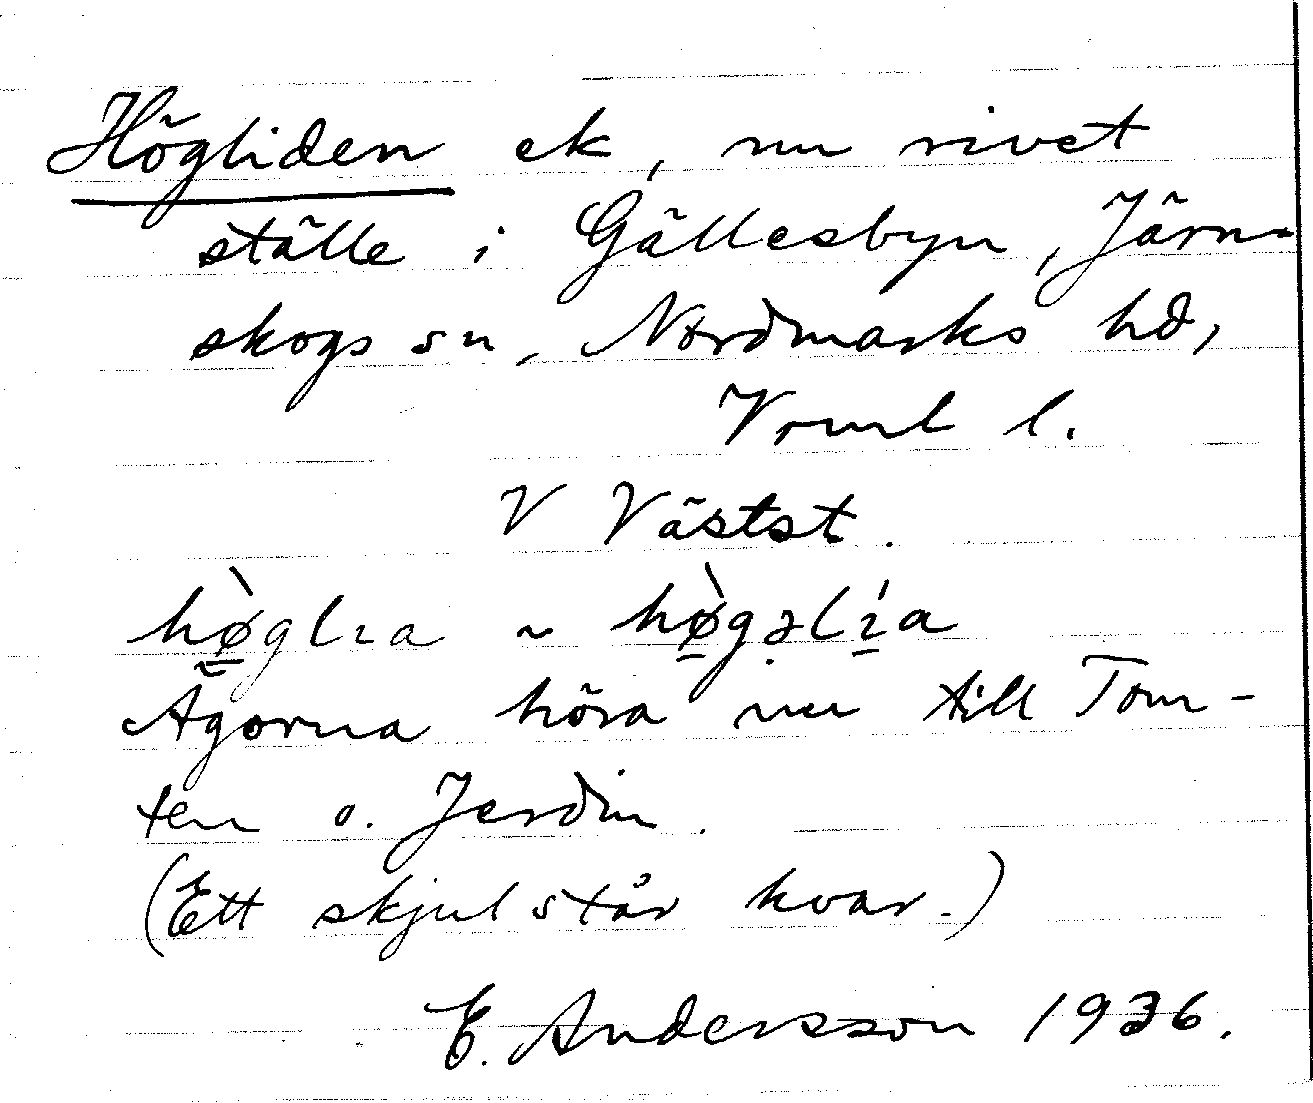 Högliden ek, nu rivet
ställe i Gällesbyn, Järn-
skogs sn, Nordmarks hd,
Vrml l.
V Västst.
hø̀glıa ~ hø̀gəlı́a
Ägorna höra nu till Tom-
ten o. Jerdin.
(Ett skjul står kvar.)
E. Andersson 1936.